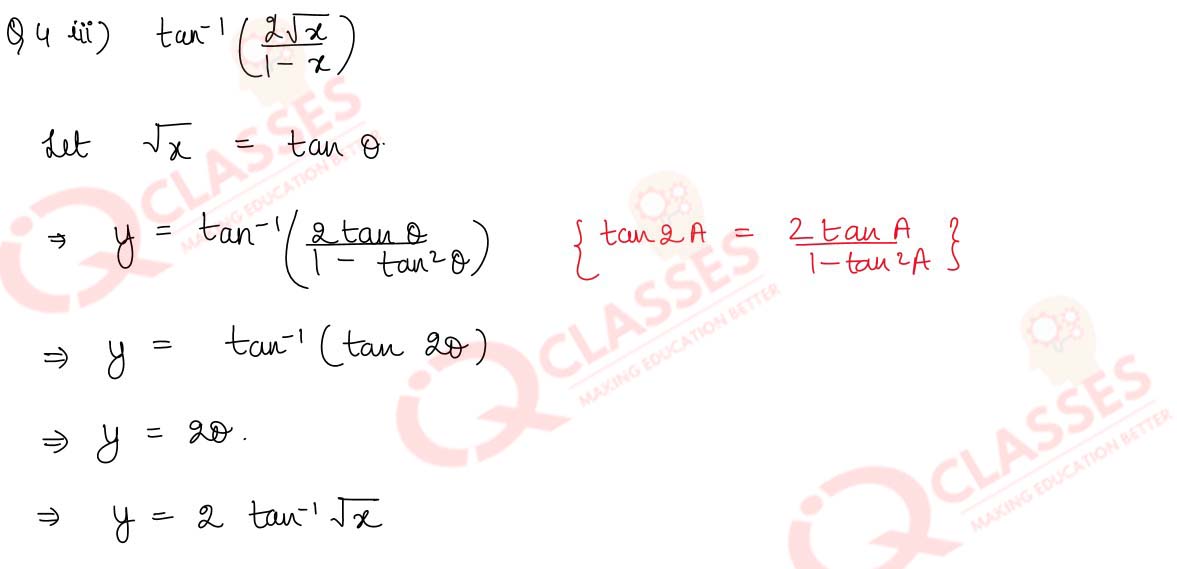 Q 4 iii) tan⁻¹(2√x / 1 - x)
Let √x = tan θ.
⇒ y = tan⁻¹(2 tan θ / 1 - tan² θ) { tan 2A = 2 tan A / 1 - tan² A }
⇒ y = tan⁻¹(tan 2θ)
⇒ y = 2θ.
⇒ y = 2 tan⁻¹ √x
iQ CLASSES
MAKING EDUCATION BETTER
iQ CLASSES
MAKING EDUCATION BETTER
iQ CLASSES
MAKING EDUCATION BETTER